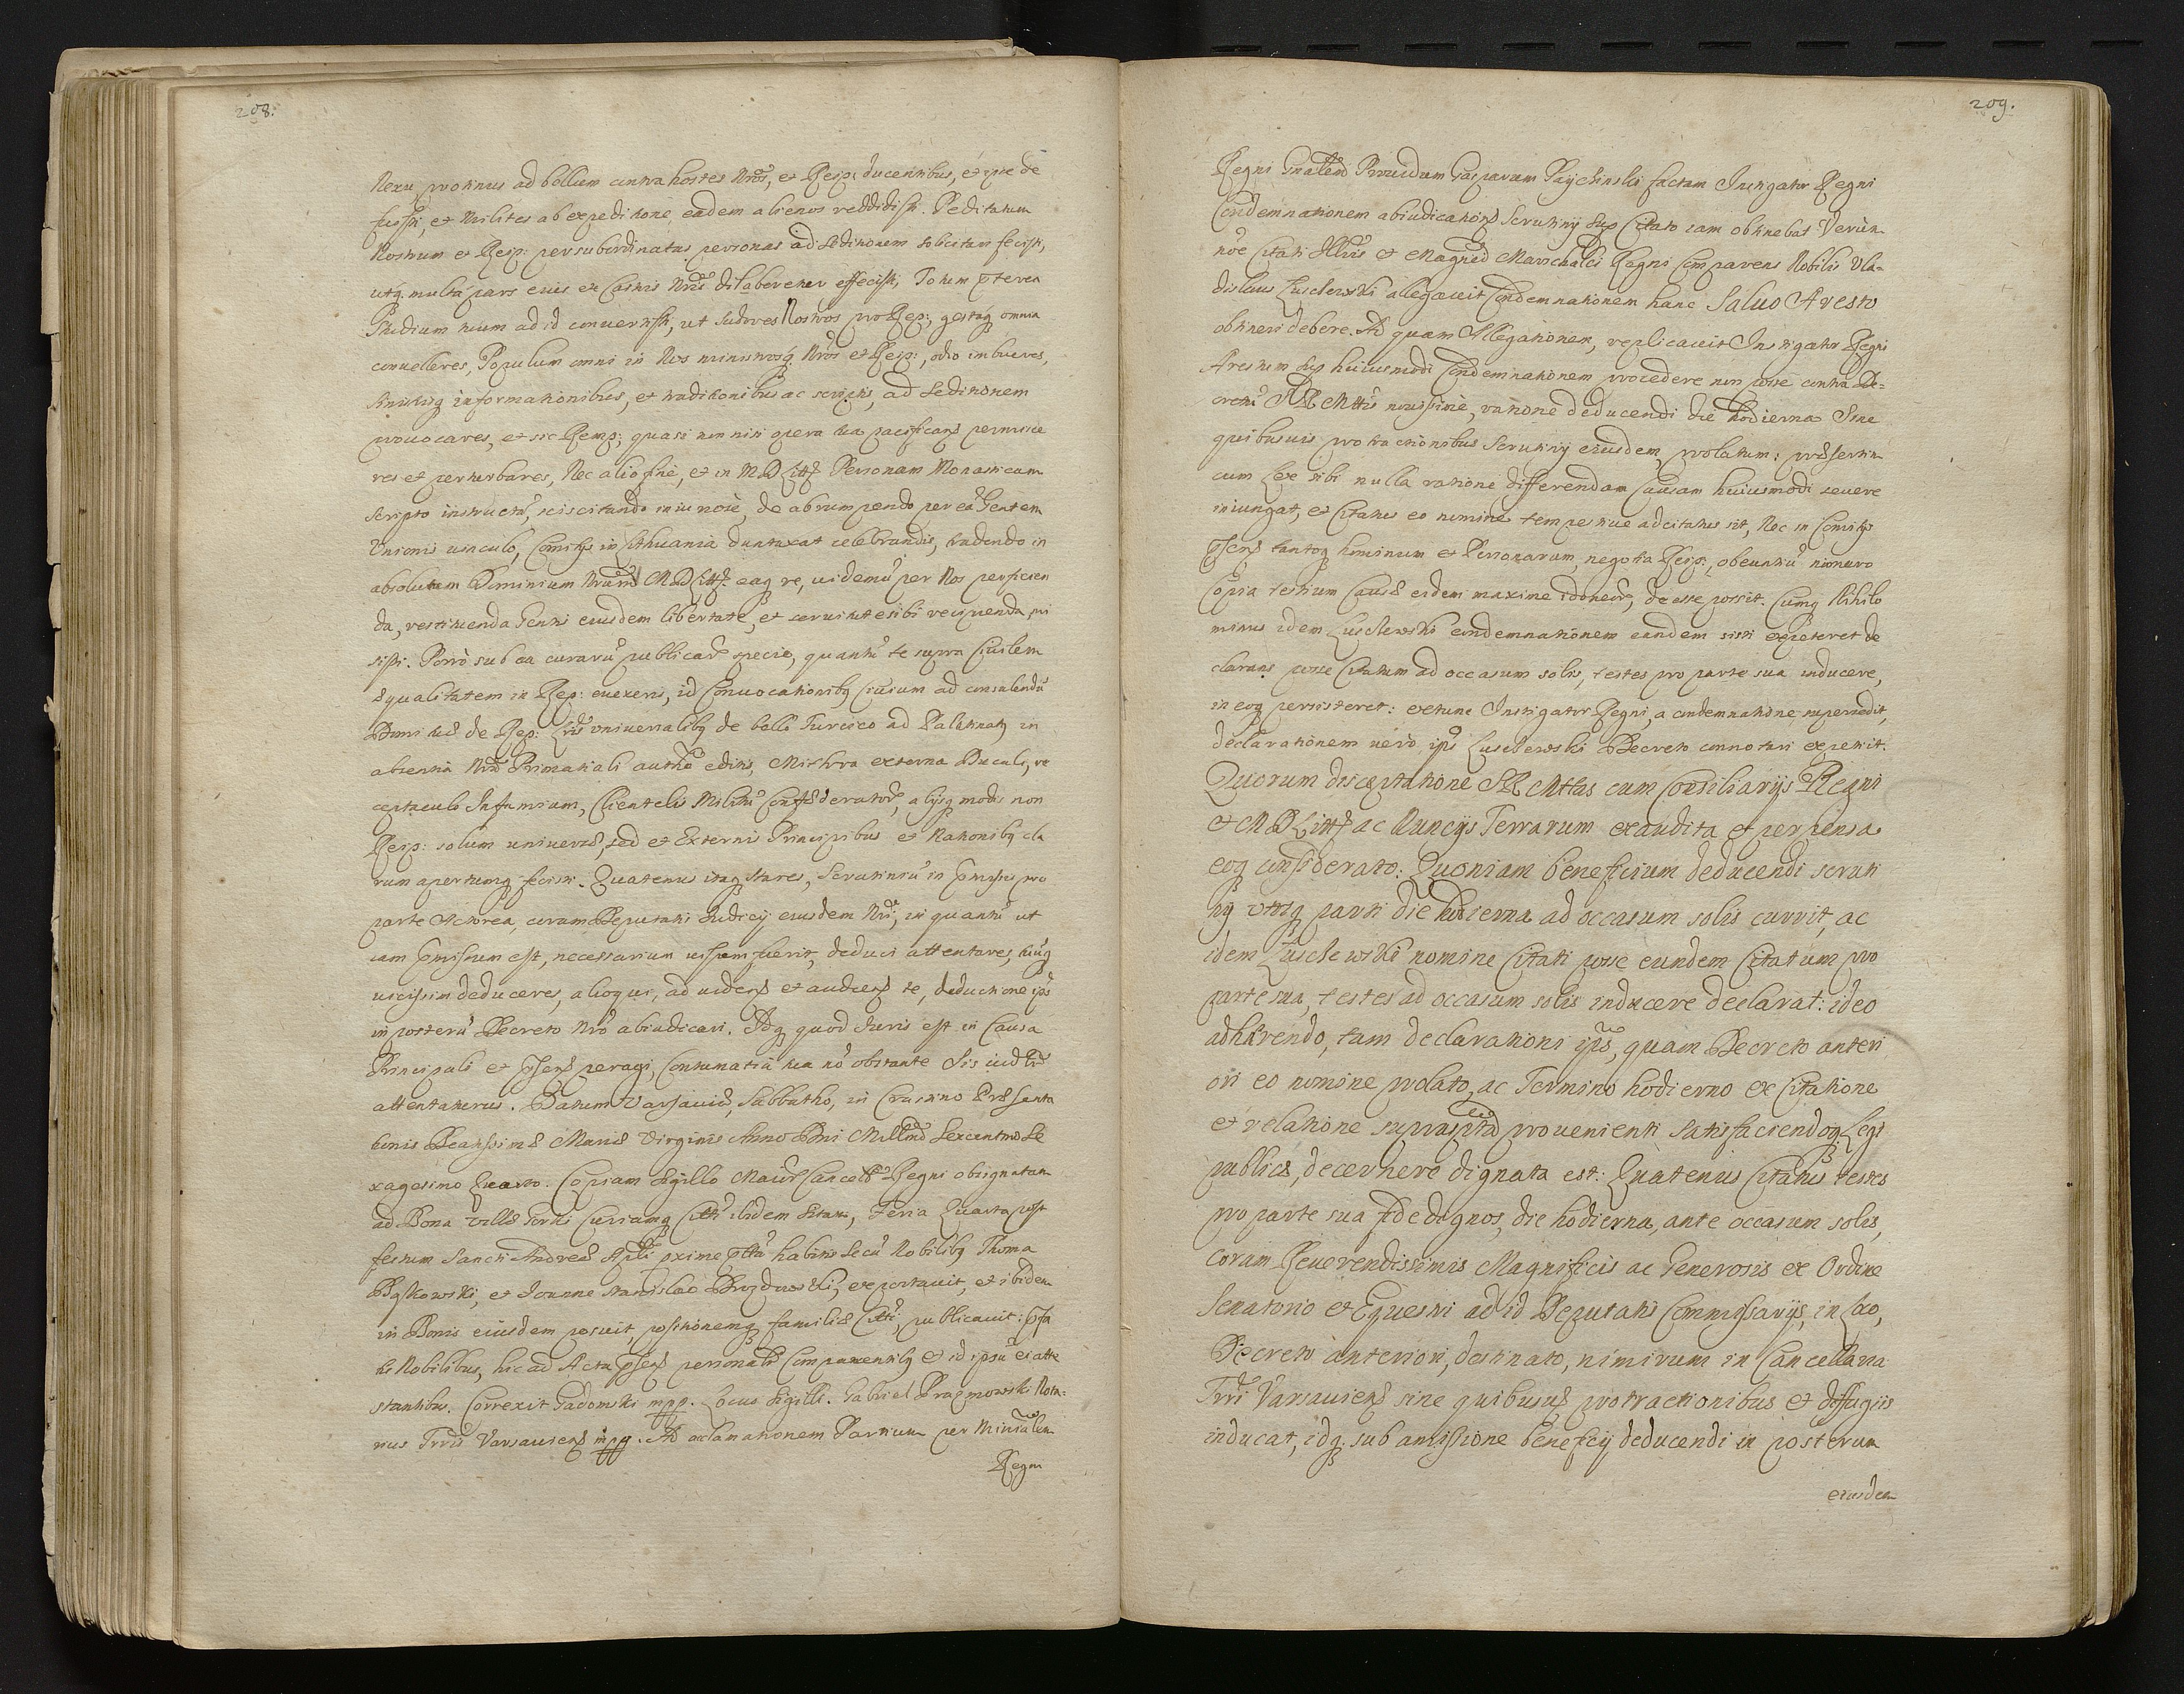 208.
Nexu protinus ad bellum contra hostes Nros, et Reip: ducentibus, et ipse de
fuisti, et Milites ab expeditione eadem alienos reddidisti. Peditatum
Nostrum et Reip: per subordinatas personas ad Seditionem solicitari fecisti,
utq. multa pars eius ex Castris Nris dilaberetur effecisti, Totum pterea
Studium tuum ad id convertisti, ut Sudores Nostros pro Rep:, gestaq omnia
convelleres, Populum omni in Nos ministrosq Nros et Reip:, odio imbueres,
sinistrisq informationibus, et traditionibus ac scriptis, ad Seditionem
provocares, et sic Remp: quasi non nisi opera tua pacificand permisce
res et perturbares, Nec alio fine, et in M D Litt Personam Monasticam
scripto instructa, sciscitando in iunore, de abrumpendo per ea Gentem
Unionis vinculo, Comitijs in Lithuania duntaxat celebrandis, tradendo in
absolutum Dominium Nrum M D Litt. eaq re, uidemu per Nos perficien
da, restituenda Genti eiusdem libertate, et servitute sibi recipienda, mi
sisti. Porro sub ea curaru publicar specie, quantu te supra Ciuilem
equalitatem in Rep: euexeris, id Convocationibq Ciuium ad consulendu
Domi tue de Rep: Lris universalibq de bello Turcico ad Palatinatq in
absentia Nra Primatiali autho editis, Militia externa Ducali, re
ceptaculo Infamium, Clientelis Militu Confederator, alijsq modis non
Reip: solum universe, sed et Externis Principibus et Nationibq cla
rum apertumq fecisti. Quatenus itaq stares, Scrutiniu in Pmissis pro
parte Actorea, coram Deputatis Judicij eiusdem Nri, in quantu ut
iam Pmissum est, necessarium uisum fuerit, deduci attentares, tuuq
uicissim deduceres, alioqui, ad uidend et audiend te, deductione ips
in posteru Decreto Nro abiudicari. Idq quod Iuris est in Causa
Principali et Psens peragi, Contumatia tua no obstante Sis iudlr
attentaturus. Datum Varsavie, Sabbatho, in Crastino Presenta
tionis Beatissime Marie Virginis Anno Dni Millmo Sexcentmo Se
xagesimo Quarto. Copiam Sigillo Maior Cancell Regni obsignatam
ad Bona Ville Serki Curiamq Citti ibidem sitam, Feria Quarta post
festum Sancti Andree Apli pxime ptta habitis Secu Nobilibq Thoma
Bąkowski, et Joanne Stanislao Brozdowski, exportavit, et ibidem
in Bonis eiusdem posuit, positionemq familie Citti, publicavit: spsa
tis Nobilibus, hic ad Acta psens personalr Comparentibq et id ipsu ei atte
stantibus. Correxit Gadomski mpp. Locus Sigilli. Gabriel Prazmowski Nota:
rius Trris Varsaviens mpp. Ad acclamationem Partium per Ministrlem
Regni
209.
Regni Gnalem Providum Casparum Paychinski factam Instigator Regni
Condemnationem abiudicationis Scrutinij Sup Citato iam obtinebat Verùm
noe Citati Illris et Magnci Marschalci Regni Comparens Nobilis Vla-
dislaus Lusclewski allegavit Condemnationem hanc Saluo Aresto
obtineri debere. Ad quam Allegationem, replicavit Instigator Regni
Arestum Sup huiusmodi Condemnationem procedere non posse contra De-
cretu SRMttis novissimè, ratione deducendi die hodierna Sine
quibusvis protractionibus Scrutinij eiusdem, prolatum; presertim
cum Lex sibi nulla ratione differendam Causam huiusmodi severe
iniungat, et Citatus eo nomine tempestive adcitatus sit, Nec in Comitijs
Psens tantoq hominum et Personarum, negotia Reip: obeuntiu numero
Copia testium Cause eidem maxime idoneor, deesse possit. Cumq Nihilo
minus idem Lusclewski condemnationem eandem sisti expeteret de
clarans posse Citatum ad occasum solis, testes pro parte sua inducere,
in eoq persisteret: extunc Instigator Regni, a condemnatione supersedit,
declarationem verò ips Lusclewski Decreto connotari expetiit.
Quorum disceptatione SRMttas cum Consiliarijs Regni
et M D Litt ac Nuncijs Terrarum exaudita et perpensa
eoq considerato: Quoniam beneficium deducendi scruti
nij utriq parti die hodierna ad occasum solis currit, ac
idem Lusclewski nomine Citati posse eundem Citatum pro
parte sua, testes ad occasum solis inducere declarat: ideo
adhærendo, tam declarationi ips, quam Decreto anteri
ori eo nomine prolato, ac Termino hodierno ex Citatione
et relatione suprascpta provenienti satisfaciendoq. Legi
publice, decernere dignata est: Quatenus Citatus testes
pro parte sua fide dignos, die hodierna, ante occasum solis,
coram Reverendissimis Magnificis ac Generosis ex Ordine
Senatorio et Equestri ad id Deputatis Commissarijs, in Loco,
Decreto anteriori, destinato, nimirum in Cancellaria
Trri Varsaviens sine quibusuis protractionibus et diffugiis
inducat, idq. sub amissione beneficij deducendi in posterum
eiusdem